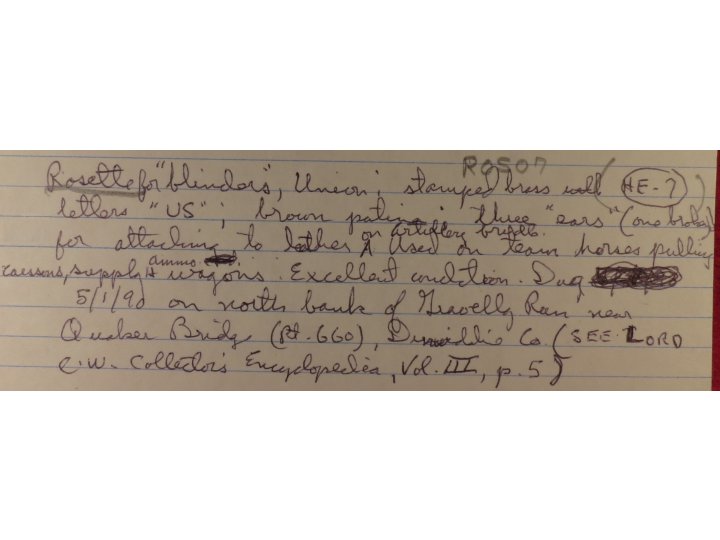 ROS07
Rosette for "blinders", Union; stamped brass with (HE-7)
letters "US"; brown patina; three "ears" (one broken)
on artillery bridle.
for attaching to leather ^ Used on team horses pulling
caissons, supply + ammo. wagons. Excellent condition. Dug
5/1/90 on north bank of Gravelly Run near
Quaker Bridge (Rt. 660), Dinwiddie Co. (SEE LORD
C.W. Collector's Encyclopedia, Vol. III, p. 5)